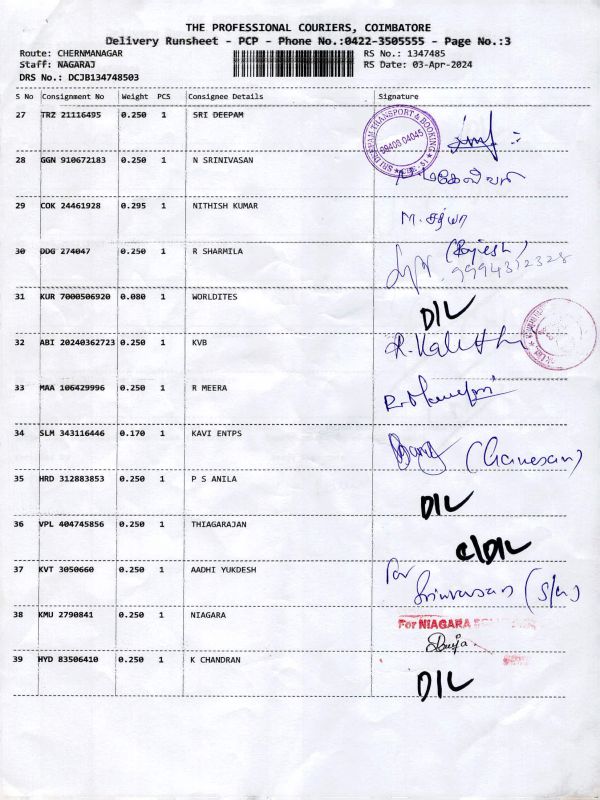 THE PROFESSIONAL COURIERS, COIMBATORE
Delivery Runsheet - PCP - Phone No.:0422-3505555 - Page No.:3
Route: CHERNMANAGAR RS No.: 1347485
Staff: NAGARAJ RS Date: 03-Apr-2024
DRS No.: DCJB134748503
S No Consignment No Weight PCS Consignee Details Signature
27 TRZ 21116495 0.250 1 SRI DEEPAM
SRI DEEPAM TRANSPORT & BOOKING
28 GGN 910672183 0.250 1 N SRINIVASAN
29 COK 24461928 0.295 1 NITHISH KUMAR M. சத்யா
30 DDG 274047 0.250 1 R SHARMILA (Rajesh)
9994312328
31 KUR 7000506920 0.080 1 WORLDITES D/L
32 ABI 20240362723 0.250 1 KVB
33 MAA 106429996 0.250 1 R MEERA
34 SLM 343116446 0.170 1 KAVI ENTPS (Ganesan)
35 HRD 312883853 0.250 1 P S ANILA D/L
36 VPL 404745856 0.250 1 THIAGARAJAN C/D/L
37 KVT 3050660 0.250 1 AADHI YUKDESH For
Srinivasan (S/n)
38 KMU 2790841 0.250 1 NIAGARA For NIAGARA
39 HYD 83506410 0.250 1 K CHANDRAN D/L